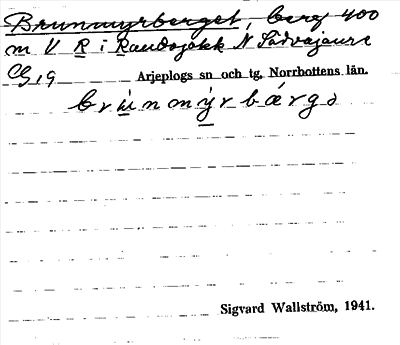 Brunnmyrberget, berg 400
m V R i Raudojokk N Sädvajaure
Cg, 9 Arjeplogs sn och tg, Norrbottens län.
brùnmýrbærgə
Sigvard Wallström, 1941.